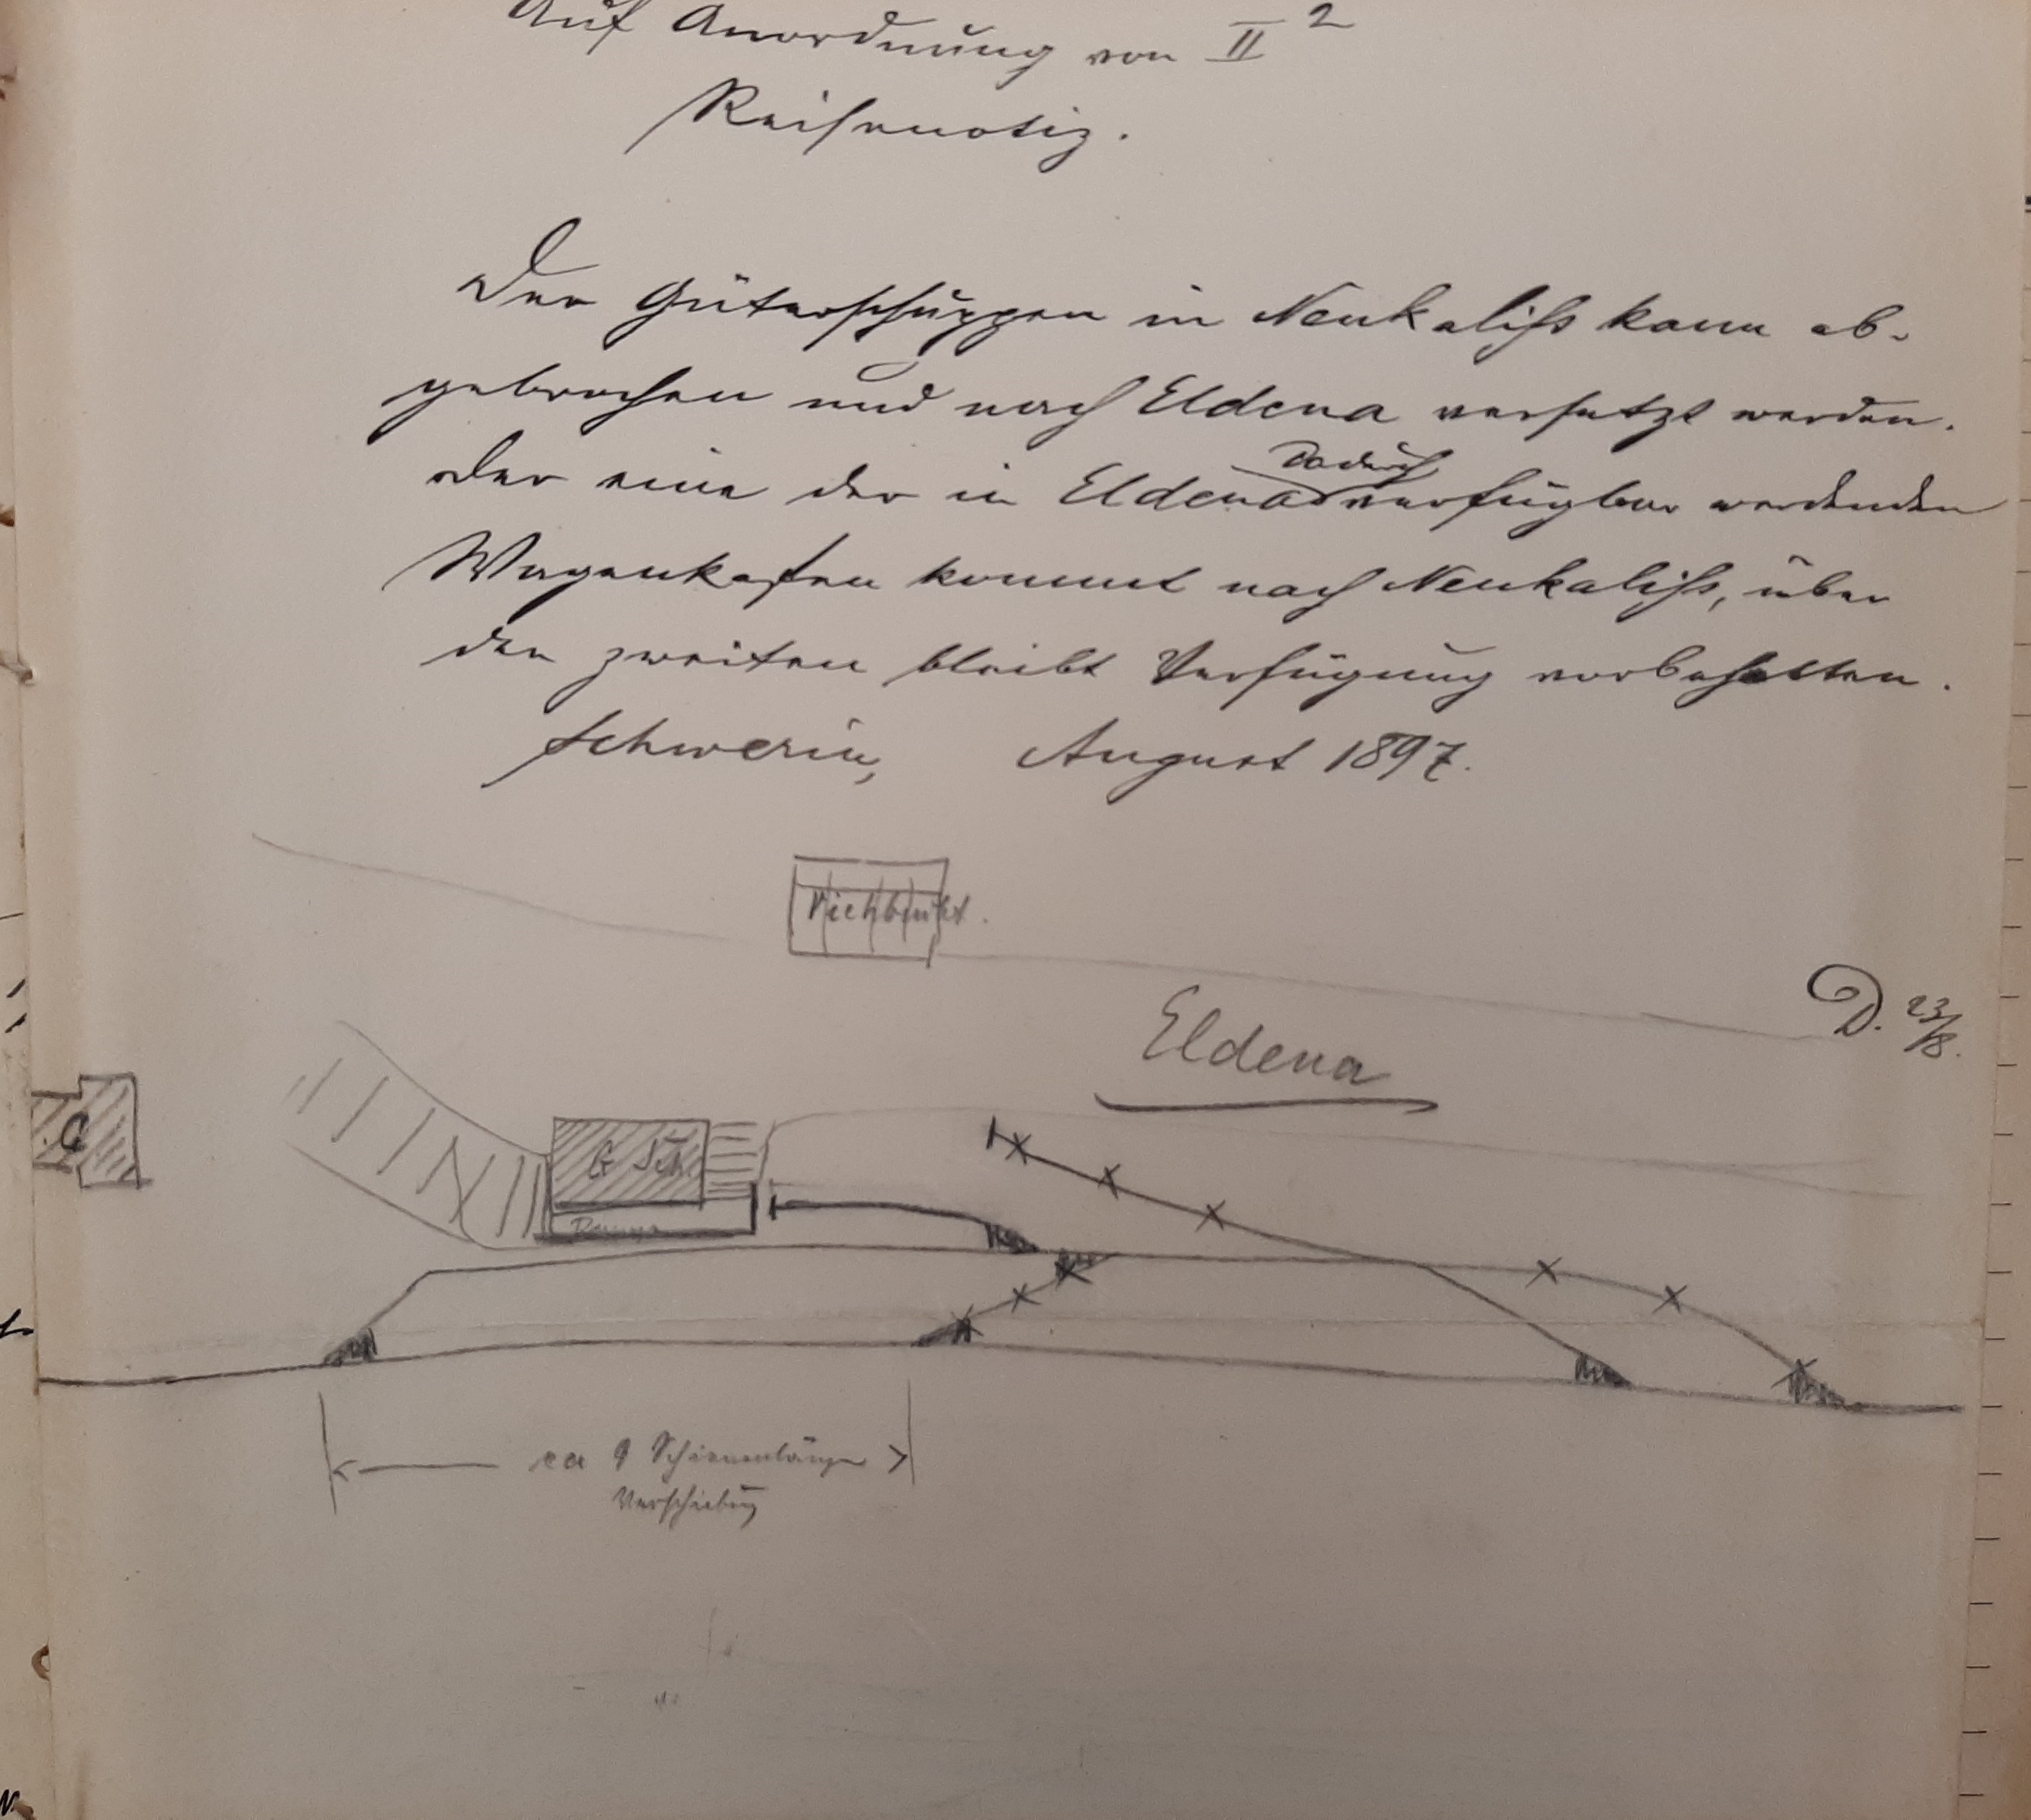 Auf Anordnung von II²
Reisenotiz.
Der Güterschuppen in Neukaliß kann ab-
gebrochen und nach Eldena versetzt werden.
Der eine der in Eldena dadurch verfügbar werdenden
Wagenkasten kommt nach Neukaliß, über
den zweiten bleibt Verfügung vorbehalten.
Schwerin, August 1897.
Viehbucht.
D. 23/8.
Eldena
G Sch.
Rampe
ca 9 Schienenlängen
Verschiebung